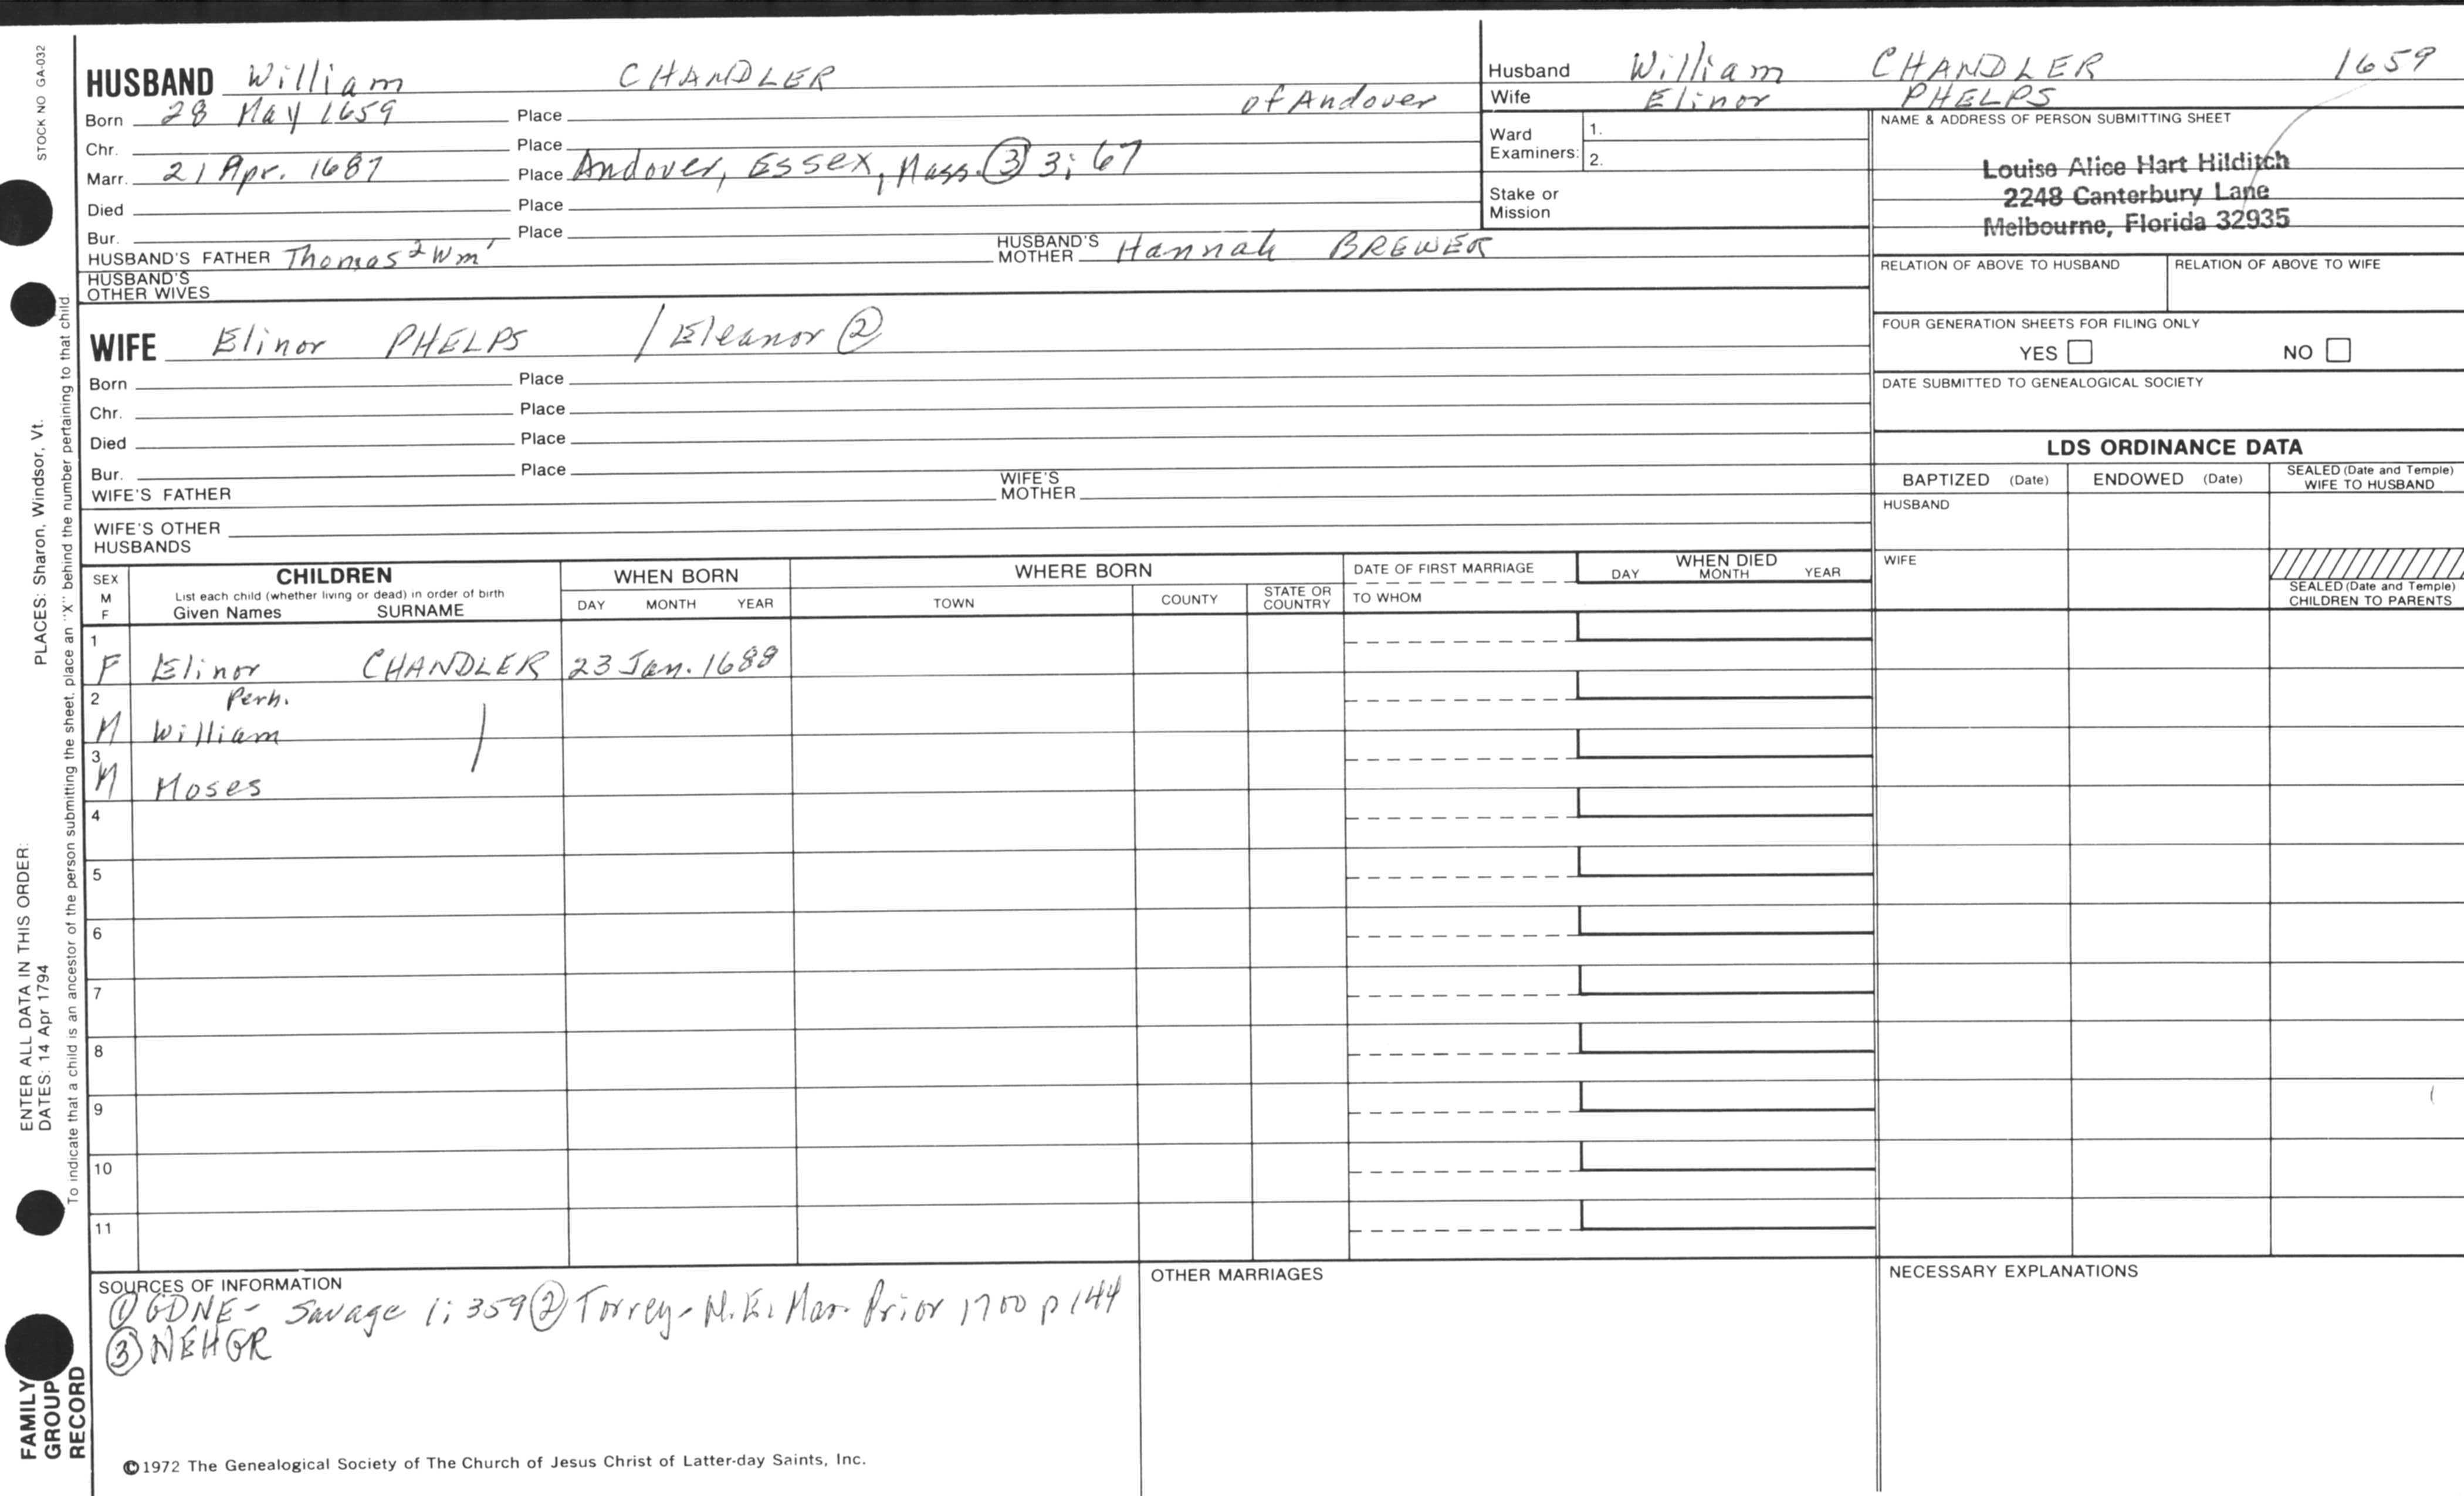 STOCK NO GA-032
HUSBAND William CHANDLER
Born 28 May 1659 Place of Andover
Chr. Place
Marr. 21 Apr. 1687 Place Andover, Essex, Mass. ③ 3; 67
Died Place
Bur. Place
HUSBAND'S FATHER Thomas² Wm¹ HUSBAND'S MOTHER Hannah BREWER
HUSBAND'S OTHER WIVES
Husband William CHANDLER 1659
Wife Elinor PHELPS
Ward Examiners: 1.
2.
Stake or Mission
NAME & ADDRESS OF PERSON SUBMITTING SHEET
Louise Alice Hart Hilditch
2248 Canterbury Lane
Melbourne, Florida 32935
RELATION OF ABOVE TO HUSBAND RELATION OF ABOVE TO WIFE
FOUR GENERATION SHEETS FOR FILING ONLY
YES NO
DATE SUBMITTED TO GENEALOGICAL SOCIETY
WIFE Elinor PHELPS / Eleanor ②
Born Place
Chr. Place
Died Place
Bur. Place
WIFE'S FATHER WIFE'S MOTHER
WIFE'S OTHER HUSBANDS
LDS ORDINANCE DATA
BAPTIZED (Date) ENDOWED (Date) SEALED (Date and Temple) WIFE TO HUSBAND
HUSBAND
WIFE
SEALED (Date and Temple) CHILDREN TO PARENTS
SEX M F
CHILDREN
List each child (whether living or dead) in order of birth
Given Names SURNAME
WHEN BORN
DAY MONTH YEAR
WHERE BORN
TOWN COUNTY STATE OR COUNTRY
DATE OF FIRST MARRIAGE
TO WHOM
WHEN DIED
DAY MONTH YEAR
1
F Elinor CHANDLER 23 Jan. 1688
2 Perh.
M William
3
M Moses
4
5
6
7
8
9
10
11
SOURCES OF INFORMATION
① GDNE - Savage 1; 359 ② Torrey - N.E. Mar. Prior 1700 p 144
③ NEHGR
OTHER MARRIAGES
NECESSARY EXPLANATIONS
©1972 The Genealogical Society of The Church of Jesus Christ of Latter-day Saints, Inc.
ENTER ALL DATA IN THIS ORDER: PLACES: Sharon, Windsor, Vt.
DATES: 14 Apr 1794
To indicate that a child is an ancestor of the person submitting the sheet, place an "X" behind the number pertaining to that child.
FAMILY
GROUP
RECORD